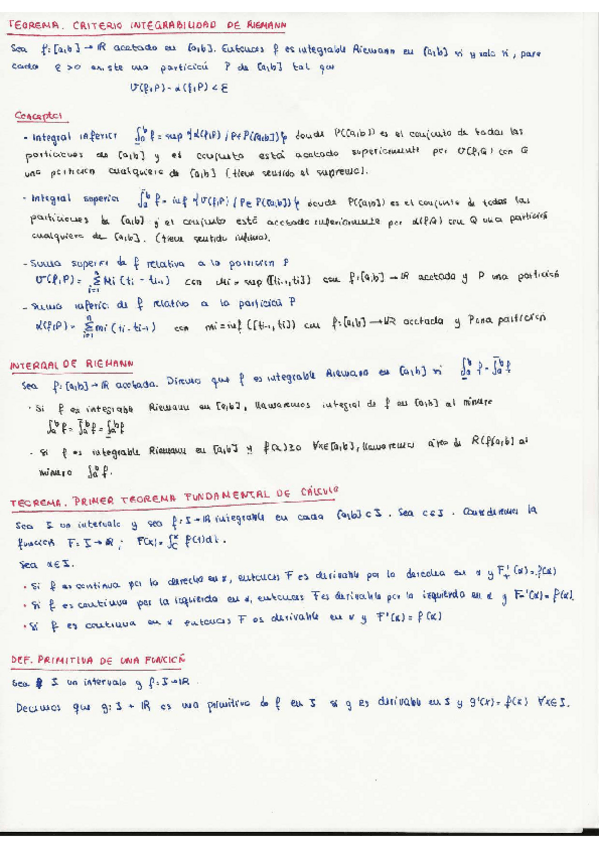 TEOREMA. CRITERIO INTEGRABILIDAD DE RIEMANN
Sea f:[a,b]→ℝ acotado en [a,b]. Entonces f es integrable Riemann en [a,b] si y solo si, para
cada ε>0 existe una partición P de [a,b] tal que
U(f,P) - L(f,P) < ε
Conceptos
- Integral inferior ∫_a^b f = sup {L(f,P) / P∈P([a,b])} donde P([a,b]) es el conjunto de todas las
particiones de [a,b] y el conjunto está acotado superiormente por U(f,Q) con Q
una partición cualquiera de [a,b] (tiene sentido el supremo).
- Integral superior ∫_a^b f = inf {U(f,P) / P∈P([a,b])} donde P([a,b]) es el conjunto de todas las
particiones de [a,b] y el conjunto está acotado inferiormente por L(f,Q) con Q una partición
cualquiera de [a,b]. (tiene sentido ínfimo).
- Suma superior de f relativa a la partición P
U(f,P) = Σ_{i=1}^n Mi (ti - ti-1) con Mi = sup ([ti-1,ti]) con f:[a,b]→ℝ acotada y P una partición
- Suma inferior de f relativo a la partición P
L(f,P) = Σ_{i=1}^n mi (ti - ti-1) con mi = inf ([ti-1,ti]) con f:[a,b]→ℝ acotada y P una partición
INTEGRAL DE RIEMANN
Sea f:[a,b]→ℝ acotada. Diremos que f es integrable Riemann en [a,b] si ∫_a^b f = ∫_a^b f
· Si f es integrable Riemann en [a,b], llamaremos integral de f en [a,b] al número
∫_a^b f = ∫_a^b f = ∫_a^b f
· Si f es integrable Riemann en [a,b] y f(x)≥0 ∀x∈[a,b], llamaremos área de R(f,[a,b]) al
número ∫_a^b f.
TEOREMA. PRIMER TEOREMA FUNDAMENTAL DE CÁLCULO
Sea I un intervalo y sea f:I→ℝ integrable en cada [a,b]⊂I. Sea c∈I. Consideremos la
función F: I→ℝ; F(x) = ∫_c^x f(t)dt.
Sea x∈I.
· Si f es continua por la derecha en x, entonces F es derivable por la derecha en x y F'+(x)=f(x)
· Si f es continua por la izquierda en x, entonces F es derivable por la izquierda en x y F-'(x)=f(x).
· Si f es continua en x entonces F es derivable en x y F'(x)=f(x)
DEF. PRIMITIVA DE UNA FUNCIÓN
Sea I un intervalo y f:I→ℝ.
Decimos que g:I→ℝ es una primitiva de f en I si g es derivable en I y g'(x)=f(x) ∀x∈I.